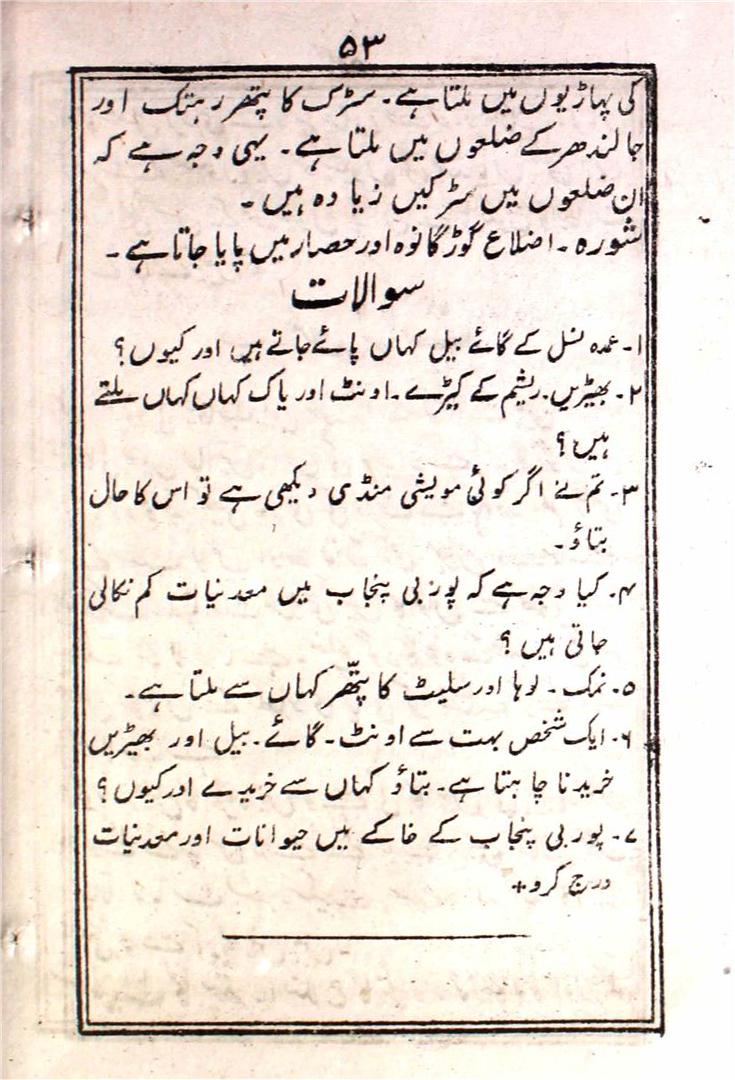 ۵۳
کی پہاڑیوں میں ملتا ہے۔ سڑک کا پتھر رہتک اور
جالندھر کے ضلعوں میں ملتا ہے۔ یہی وجہ ہے کہ
ان ضلعوں میں سڑکیں زیادہ ہیں۔
شورہ۔ اضلاع گوڑگانوہ اور حصار میں پایا جاتا ہے۔
سوالات
۱۔ عمدہ نسل کے گائے بیل کہاں پائے جاتے ہیں اور کیوں؟
۲۔ بھیڑیں۔ ریشم کے کیڑے۔ اونٹ اور یاک کہاں کہاں ملتے
ہیں؟
۳۔ تم نے اگر کوئی مویشی منڈی دیکھی ہے تو اس کا حال
بتاؤ۔
۴۔ کیا وجہ ہے کہ پوربی پنجاب میں معدنیات کم نکالی
جاتی ہیں؟
۵۔ نمک۔ لوہا اور سلیٹ کا پتّھر کہاں سے ملتا ہے۔
۶۔ ایک شخص بہت سے اونٹ۔ گائے۔ بیل اور بھیڑیں
خریدنا چاہتا ہے۔ بتاؤ کہاں سے خریدے اور کیوں؟
۷۔ پوربی پنجاب کے خاکے میں حیوانات اور معدنیات
درج کرو+